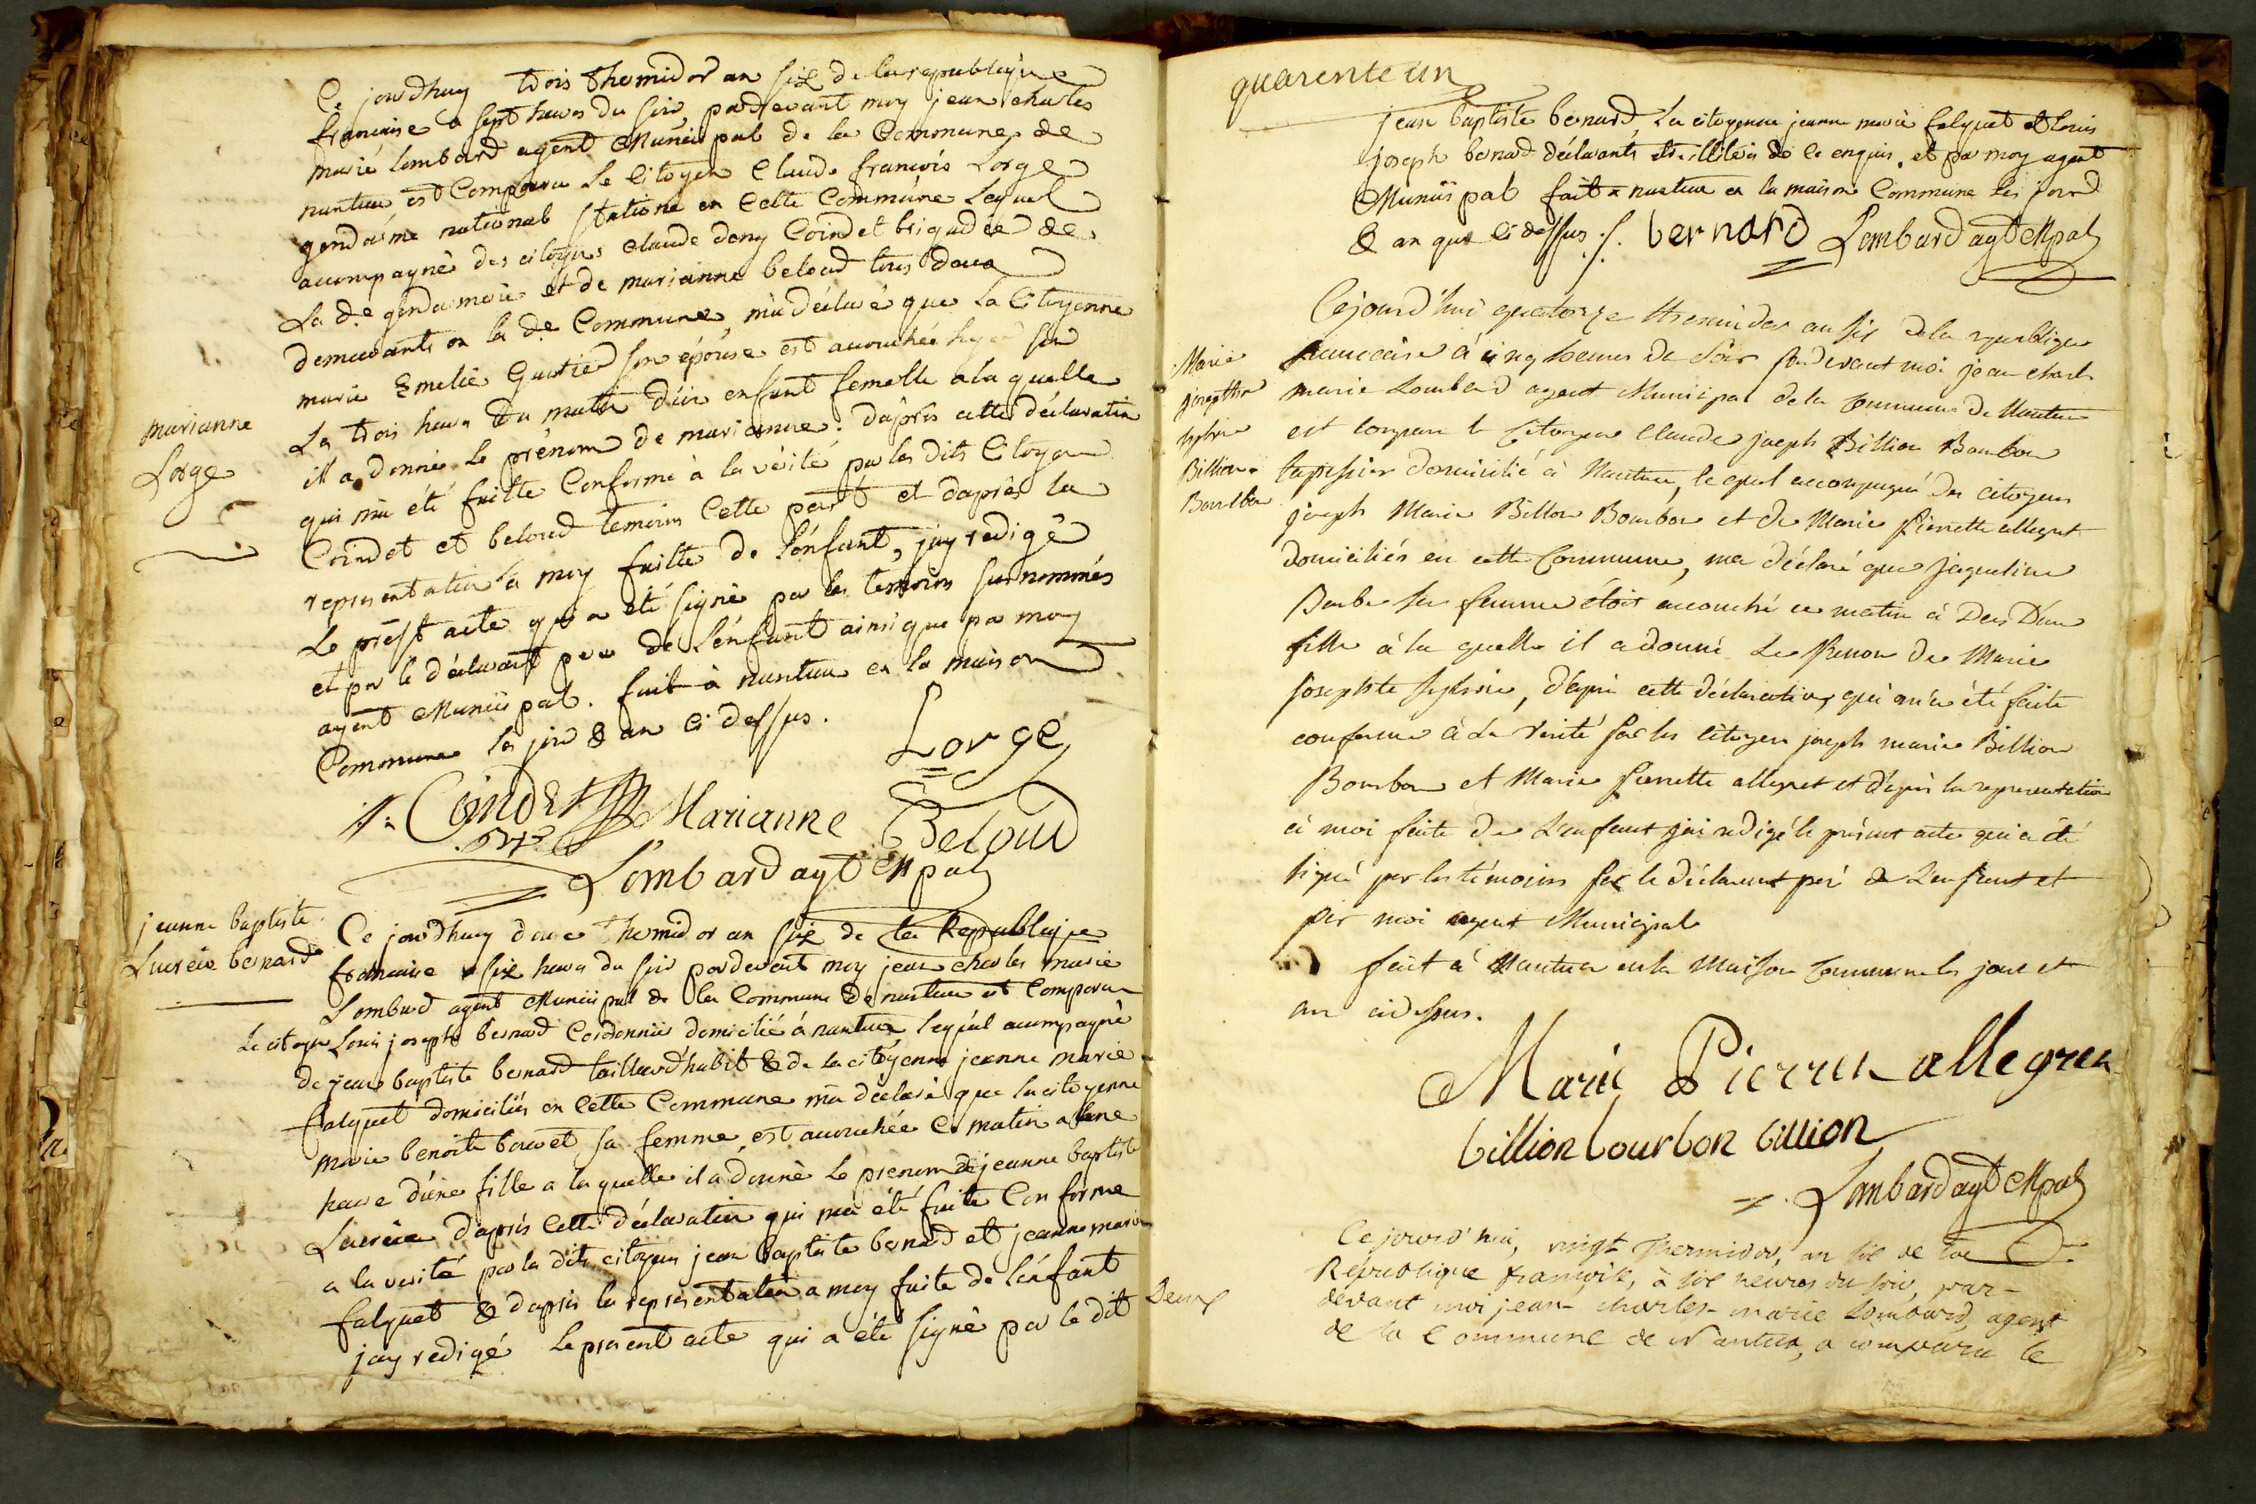 Ce jourdhuy trois thermidor an six de la republique
francaise a sept heures du soir, pardevant moy jean charles
marie lombard agent Municipal de la Commune de
nantua est Comparu Le Citoyen Claude françois Lorge
gendarme national stationé en Cette Commune Lequel
acompagné des citoyens claude deny Coindet brigadier de
La de gendarmerie et de marianne beloud tous deux
demeurants en la de Commune, m'a déclaré que La Citoyenne
marie Emelie Gautier son épouse est acouchée hyer sur
Les trois heures du matin d'un enfant femelle a la quelle
il a donné Le prénom de marianne. d'après cette déclaration
qui m'a été faitte Conforme à la vérité par les dits Citoyens
Coindet et beloud temoins Cette part et d'après la
representation à moy faitte de l'énfant, j'ay redigé
Le présent acte qui a été signé par les témoins susnommés
et par le déclarant pere de L'énfant ainsi que par moy
agent Municipal. fait à nantua en la maison
Commune les jour & an ci dessus.
marianne
Lorge
Lorge
Coindet Marianne Beloud
Lombard agt Mpal
jeanne baptiste
Lucrèce bernard
Ce jourdhuy douze thermidor an six de la Republique
francaise a six heures du soir pardevant moy jean charles marie
Lombard agent Municipal de la Commune de nantua est Comparu
Le citoyen Louis joseph bernard Cordonnier domicilié à nantua, lequel acompagné
de jean baptiste bernard tailleur d'habit & de la citoyenne jeanne marie
falquet domiciliés en Cette Commune m'a déclaré que la citoyenne
marie benoite bouvet sa femme, est acouchée Ce matin a une
heure d'une fille a la quelle il a donné Le prenom de jeanne baptiste
Lucrèce d'après Cette déclaration qui m'a été faite Conforme
a la verité par la dits citoyens jean baptiste bernard et jeanne marie
falquet & d'après la representation a moy faite de l'énfant
jay redigé Le present acte qui a été signé par le dit
quarente un
jean baptiste bernard, La citoyenne jeanne marie falquet et Louis
joseph bernard déclarants de ce enquis, et par moy agent
Municipal fait a nantua en la maison Commune les jour
& an que ci dessus ./. bernard Lombard agt Mpal
Marie
josephte
sylvie
Billion
Bourbon
Cejourd'hui quatorze thermidor an six de la republique
francaise à cinq heures de soir pardevant moi jean charles
marie Lombard agent Municipal de la commune de Nantua
est comparu le Citoyen Claude joseph Billion Bourbon
tapissier domicilié à Nantua, lequel accompagné des citoyens
joseph Marie Billion Bourbon et de Marie pierrette allegret
domiciliés en cette Commune, m'a déclaré que jaqueline
Barbe sa femme étoit accouché ce matin à Deux D'une
fille à la quelle il a donné Le Prenom de Marie
josephte sylvie, d'après cette déclaration qui m'a été faite
conforme à la Vérité par les citoyens joseph marie Billion
Bourbon et Marie pierrette allegret et d'après la representation
à moi faite de L'enfant j'ai redigé le présent acte qui a été
signé par les témoins par le déclarant pere de L'enfant et
par moi agent Municipal
fait à Nantua en la Maison Commune les jour et
an cidessus.
Marie Pierrette allegret
billion bourbon billion
Lombard agt Mpal
Deux
Cejourd'hui, vingt thermidor, an six de la
République française, à six heures du soir, par-
devant moi jean-charles-marie Lombard, agent
de la Commune de Nantua, a comparu le